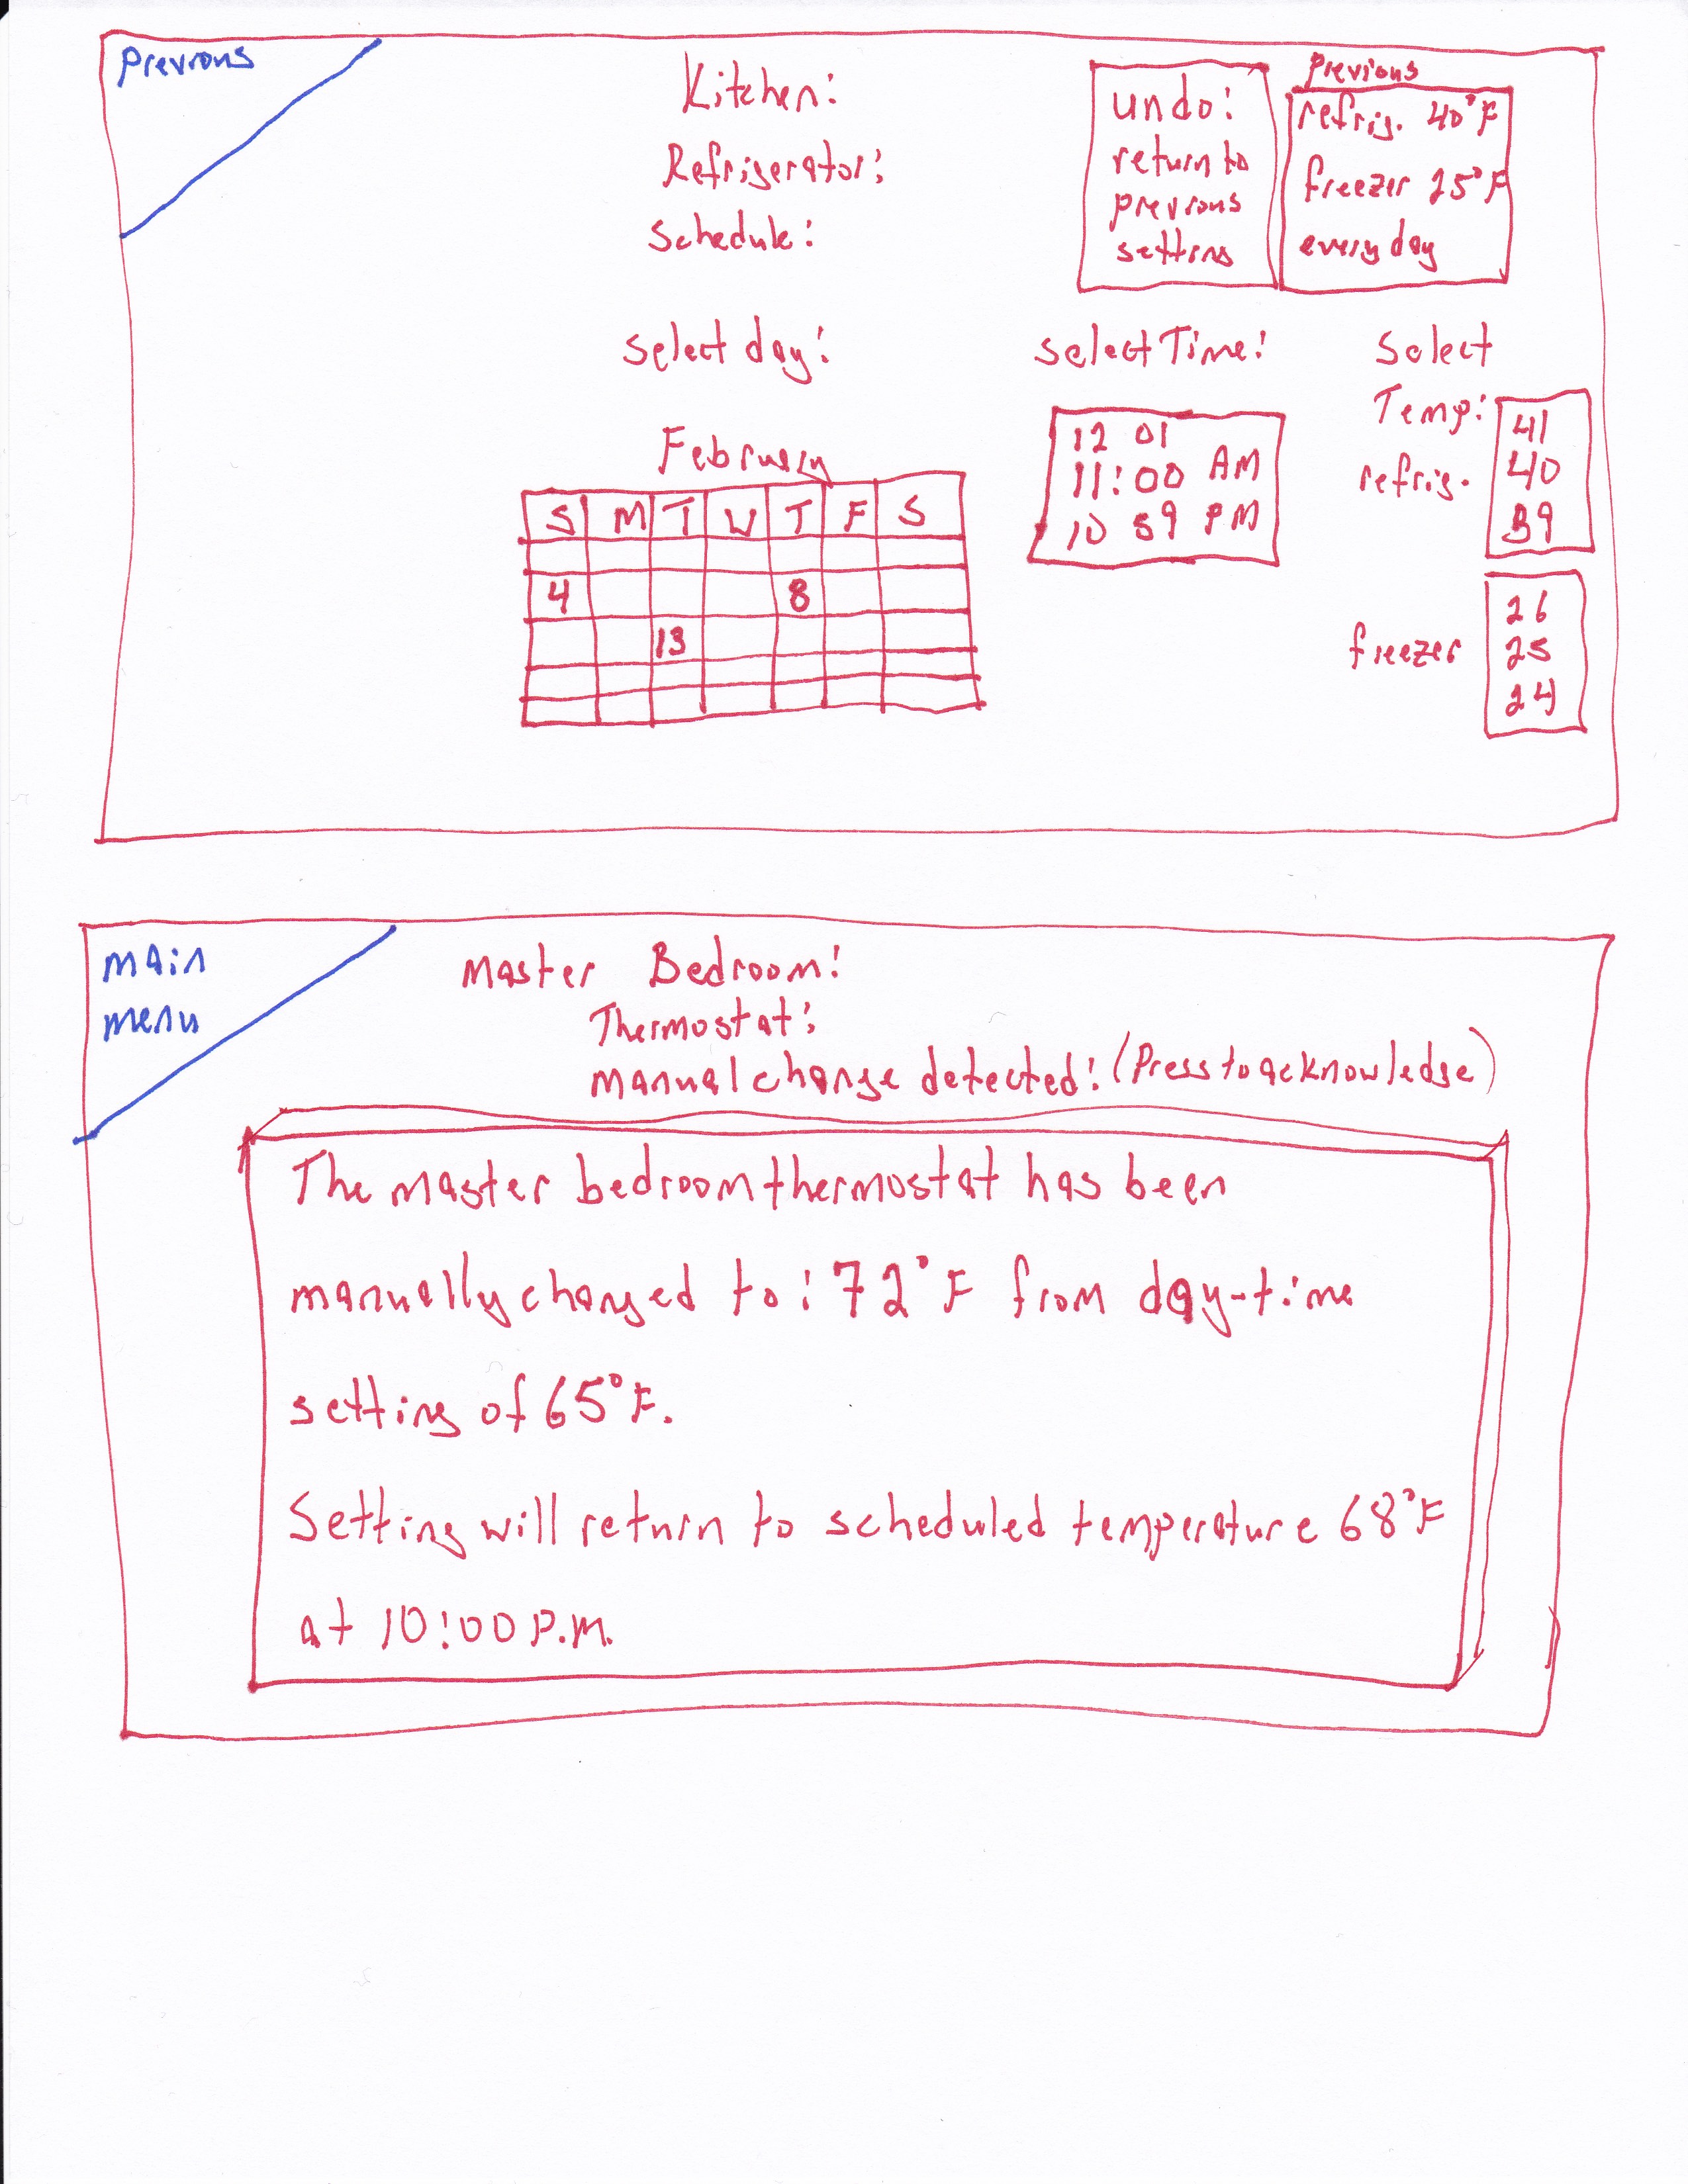 Previous
Kitchen:
Refrigerator:
Schedule:
undo:
return to
previous
setting
Previous
refrig. 40°F
freezer 25°F
every day
Select day:
Select Time:
Select
Temp:
refrig.
41
40
39
freezer
26
25
24
12 01
11:00 AM
10 59 PM
February
S M T W T F S
4 8
13
Main
menu
Master Bedroom:
Thermostat:
manual change detected: (Press to acknowledge)
The master bedroom thermostat has been
manually changed to: 72°F from day-time
setting of 65°F.
Setting will return to scheduled temperature 68°F
at 10:00 P.M.